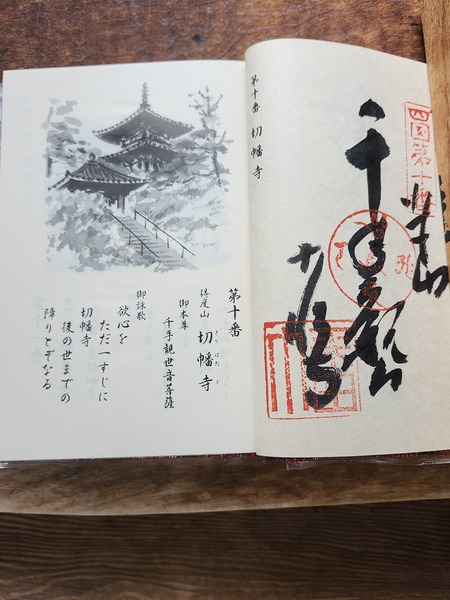 四国第十番
得度山
千手
切幡寺
第十番 切幡寺
第十番
得度山 切幡寺
きりはたじ
御本尊
千手観世音菩薩
御詠歌
欲心を
ただ一すじに
切幡寺
後の世までの
障りとぞなる